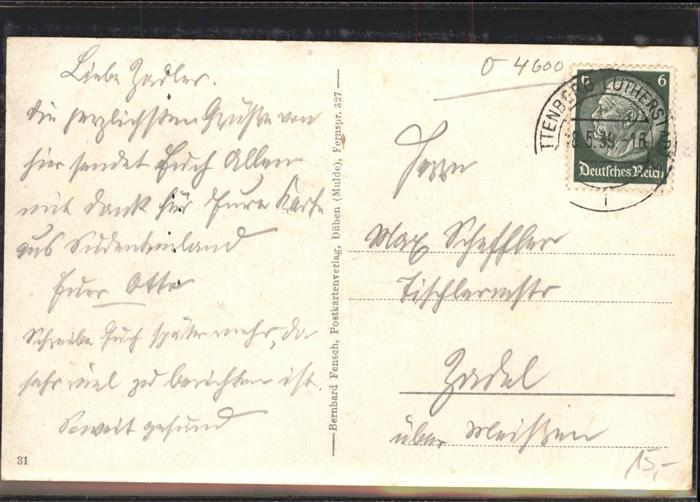 Liebe Zadler.
die herzlichsten Grüße von
hier sendet Euch Allen
mit Dank für Eure Karte
aus Sudetenland
Euer Otto
Schreibe Euch später mehr, da
sehr viel zu berichten ist.
Soweit gesund
31
Bernhard Fensch, Postkartenverlag, Düben (Mulde), Fernspr. 327
O 4600
6 6
Deutsches Reich
TTENBERG LUTHERS
.5.39. 18
i
Herrn
Max Scheffler
Tischlermstr
Zadel
über Meißen
15,-